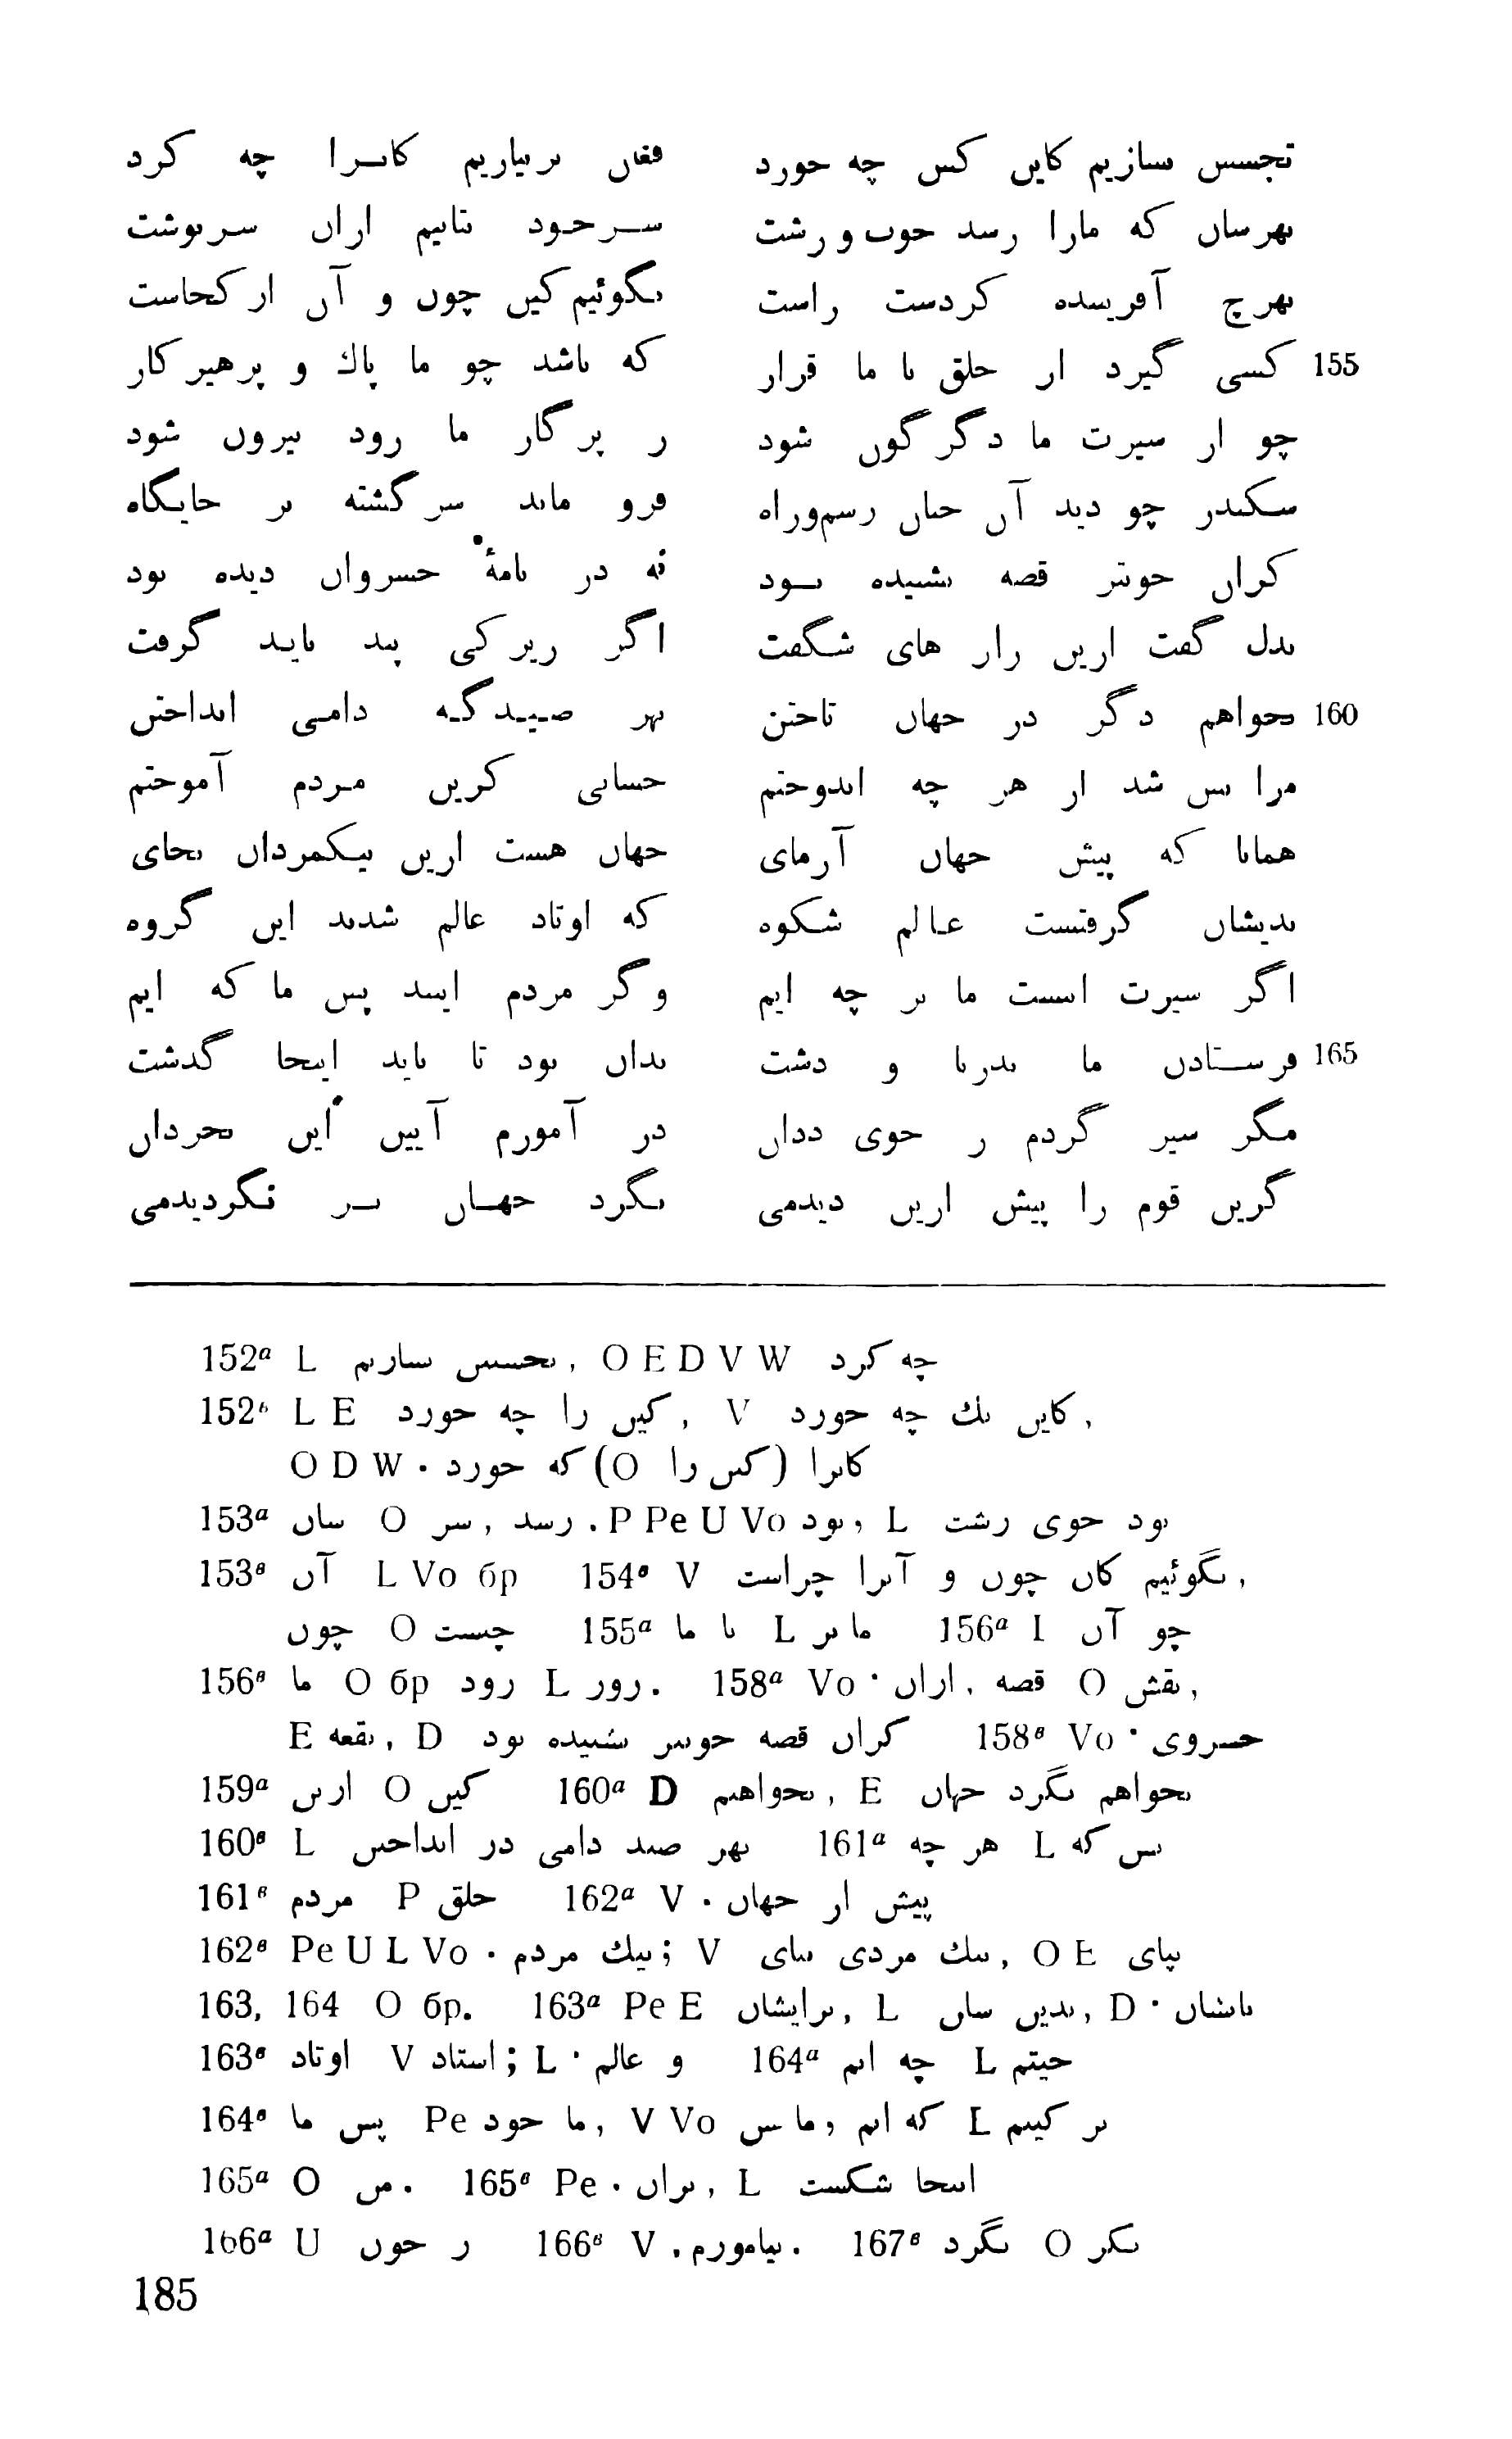 تجسس نسازیم کاین کس چه خورد	فغان بر نیاریم کانرا چه کرد
بهرسان که مارا رسد خوب و زشت	سر خود نتابیم ازان سرنوشت
بهرچ آفریننده کردست راست	نگوئیم کین چون و آن از کجاست
155 کسی گیرد از خلق با ما قرار	که باشد چو ما پاك و پرهیزکار
چو از سیرت ما دگرگون شود	ز پرگار ما زود بیرون شود
سکندر چو دید آن چنان رسم‌وراه	فرو ماند سرگشته بر جایگاه
کزان خوبتر قصه نشنیده بود	نه در نامهٔ خسروان دیده بود
بدل گفت ازین راز های شگفت	اگر زیرکی پند باید گرفت
160 نخواهم دگر در جهان تاختن	بهر صیدگه دامی انداختن
مرا بس شد از هر چه اندوختم	حسابی کزین مردم آموختم
همانا که پیش جهان آزمای	جهان هست ازین نیکمردان بجای
بدیشان گرفتست عالم شکوه	که اوتاد عالم شدند این گروه
اگر سیرت اینست ما بر چه ایم	وگر مردم اینند پس ما که ایم
165 فرستادن ما بدریا و دشت	بدان بود تا باید اینجا گذشت
مگر سیر گردم ز خوی ددان	در آموزم آیین این بخردان
گرین قوم را پیش ازین دیدمی	بگرد جهان بر نگردیدمی
152ᵃ L تجسس سازیم, OEDVW چه کرد
152ᵇ LE کین را چه خورد, V کاین یك چه خورد,
ODW · کانرا (کس را O) که خورد
153ᵃ سان O سر, رسد. P Pe U Vo بود, L بود خوی زشت
153ᵇ آن L Vo бр 154ᵇ V نگوئیم کان چون و آنرا چراست,
چون O چیست 155ᵃ با ما L ما بر 156ᵃ L چو آن
156ᵇ ما O бр زود L روز. 158ᵃ Vo · ازان, قصه O نقش,
E بقعه, D کزان قصه خوبتر نشنیده بود 158ᵇ Vo · خسروی
159ᵃ ازین O کین 160ᵃ D نخواهیم, E نخواهم بگرد جهان
160ᵇ L بهر صید دامی در انداختن 161ᵃ هر چه L بس که
161ᵇ مردم P خلق 162ᵃ V · پیش از جهان
162ᵇ Pe U L Vo · نیك مردم; V نیك مردی بپای, OE بپای
163, 164 O бр. 163ᵃ Pe E برایشان, L بدین سان, D · باشان
163ᵇ اوتاد V استاد; L · و عالم 164ᵃ چه ایم L جیتم
164ᵇ پس ما Pe ما خود, V Vo وما بس, که ایم L بر کییم
165ᵃ O من. 165ᵇ Pe · بران, L اینجا شکست
166ᵃ U ز خون 166ᵇ V, بیاموزم. 167ᵇ بگرد O بکر
185